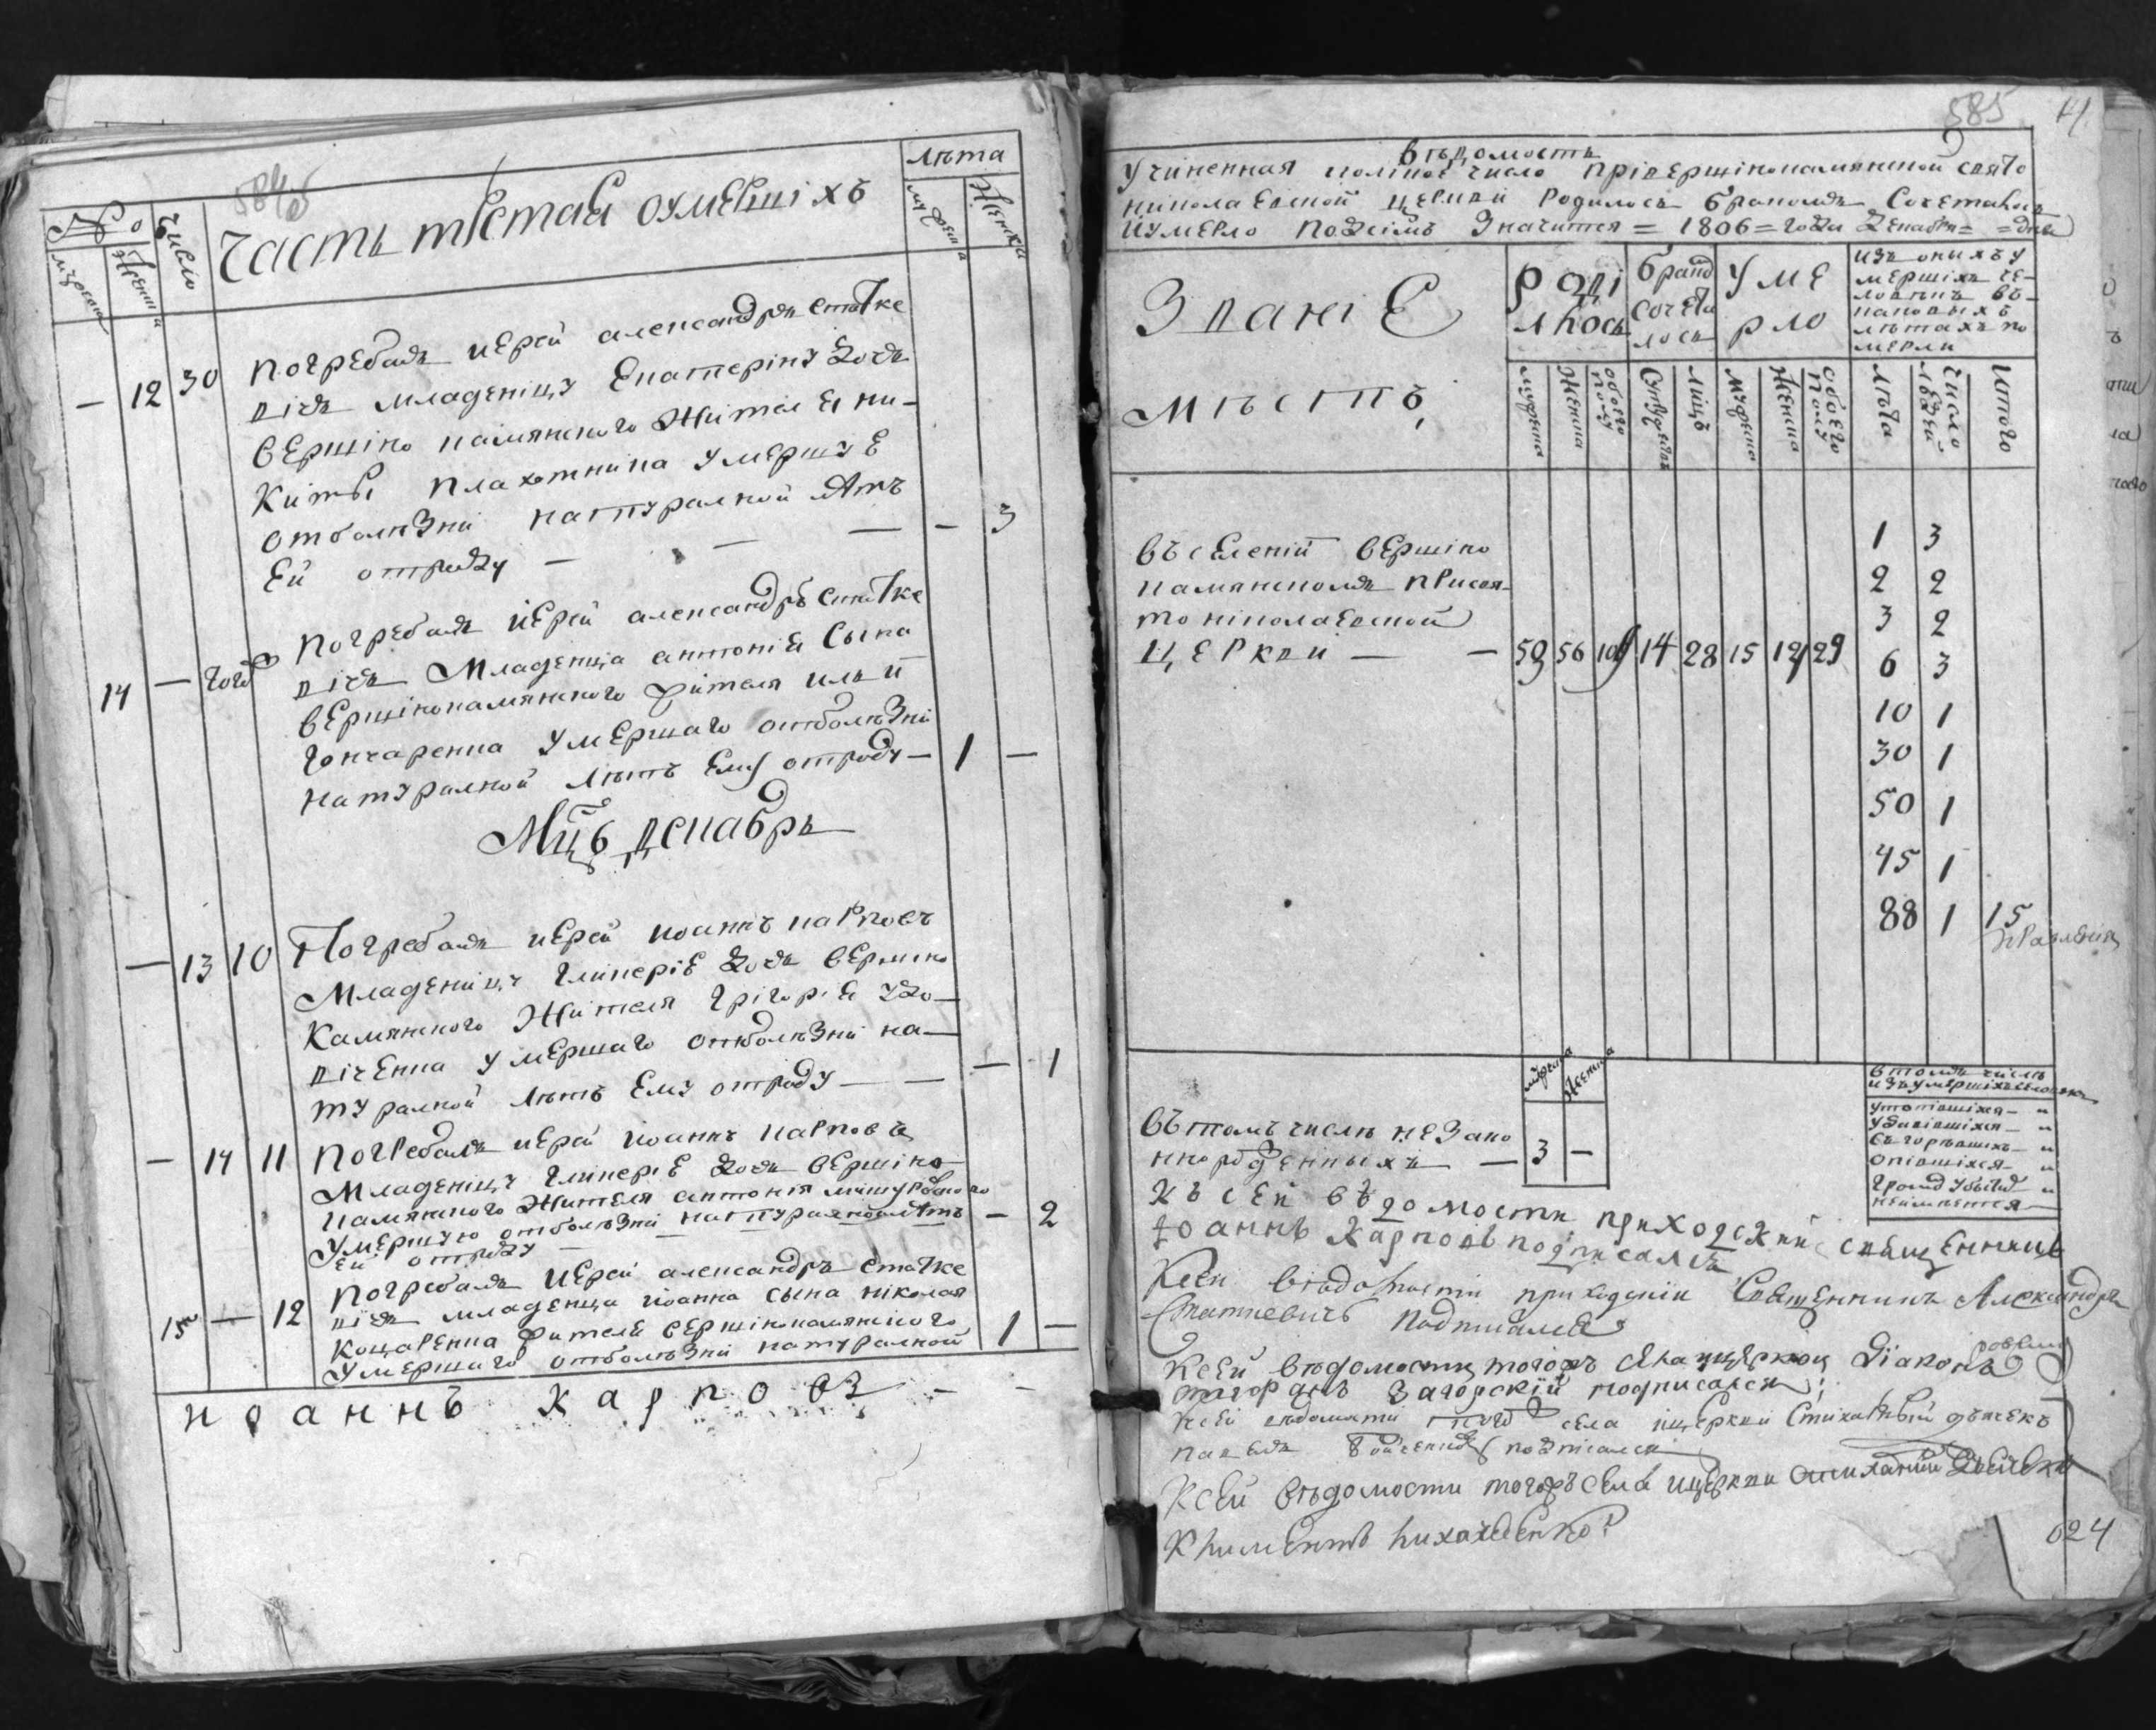 Лѣта
№
Число
Часть третая оумершихъ
мужеска
Женска
мужеска
Женска
— 12 30 погребалъ иерей александръ статке
вичъ младеницу Екатерину дочь
вершино камянского Жителя ни-
киты плахотника умершуе
отболѣзни натуралной лѣтъ
Ей отроду — — — — 3
14 — того погребалъ иерей александръ статке
вичъ Младенца антонія Сына
вершинокамянского жителя ильи
гончаренка умершаго отболѣзни
натуралной лѣтъ Ему отроду — 1 —
Мцъ декабрь
— 13 10 Погребалъ иерей иоаннъ карповъ
Младеницу гликеріе дочь вершино
Камянского Жителя григорія удо-
виченка умершаго отболѣзни на-
туралной лѣтъ Ему отроду — — — 1
— 14 11 погребалъ иерей иоаннъ карповъ
Младеницу гликеріе дочь вершино
камянского Жителя антонія
умершую отболѣзни натуралной лѣтъ — 2
Ей отроду —
15 — 12 погребалъ иерей александръ статке
вичъ младенца иоанна сына николая
коцаренка жителя вершинокамянского
умершаго отболѣзни натуралной 1 —
иоаннъ карповъ - -
585
вѣдомость
учиненная колікое число прівершінокамянской свято
николаевской церкви родилось бракомъ Сочеталось
иумерло подсимъ Значится = 1806 = года декабря = = дня
Званіе
мѣстъ
Роді
лнось
бракъ
сочета
лось
уме
рло
изъ онихъ у
мершіхъ че-
ловѣкъ въ
каковыхъ
лѣтахъ по
мерли
мужеска
Женска
обоего
полу
Супружествъ
лицъ
мужеска
Женска
обоего
полу
лѣта
число
людей
итого
въселеніи вершіно
камянскомъ присвя-
то ніколаевской
церкви — — 59 56 14 28 15 14 29
1 3
2 2
3 2
6 3
10 1
30 1
50 1
45 1
88 1 15
мужеска
Женска
вътомъ числѣ незако
ннорожденныхъ — 3 —
втомъ числѣ
изъ умершіхъ человѣкъ
утопівшіхся — "
удавівшіхся — "
съгорѣвшихъ — "
опівшіхся — "
громомъ убытыхъ "
неимѣется —
Къ сей вѣдомости приходскій священникъ
Іоаннъ Карповъ подписался
Ксей вѣдомости приходскій Священникъ Александръ
Статкевичъ подписался
Ксей вѣдомости тогожъ села ицеркви Діаконъ
Загорскій подписался
Ксей вѣдомости того села ицеркви Стихарный дячекъ
павелъ Бойченко подписался
Ксей вѣдомости тогожъ села ицеркви
624